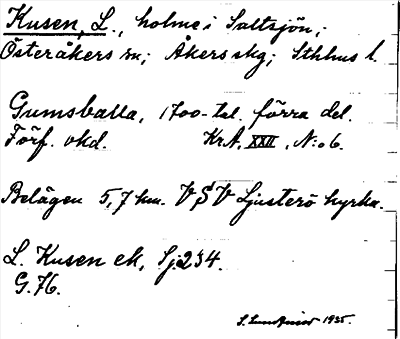 Kusen, L., holme i Saltsjön,
Österåkers sn; Åkers skg; Sthlms l.
Gumsballa, 1700-tal. förra del.
Förf. okd. Kr.A, XXII, N:o 6.
Belägen 5,7 km. VSV Ljusterö kyrka.
L. Kusen ek, Sj. 234.
G. 76.
S. 1935.